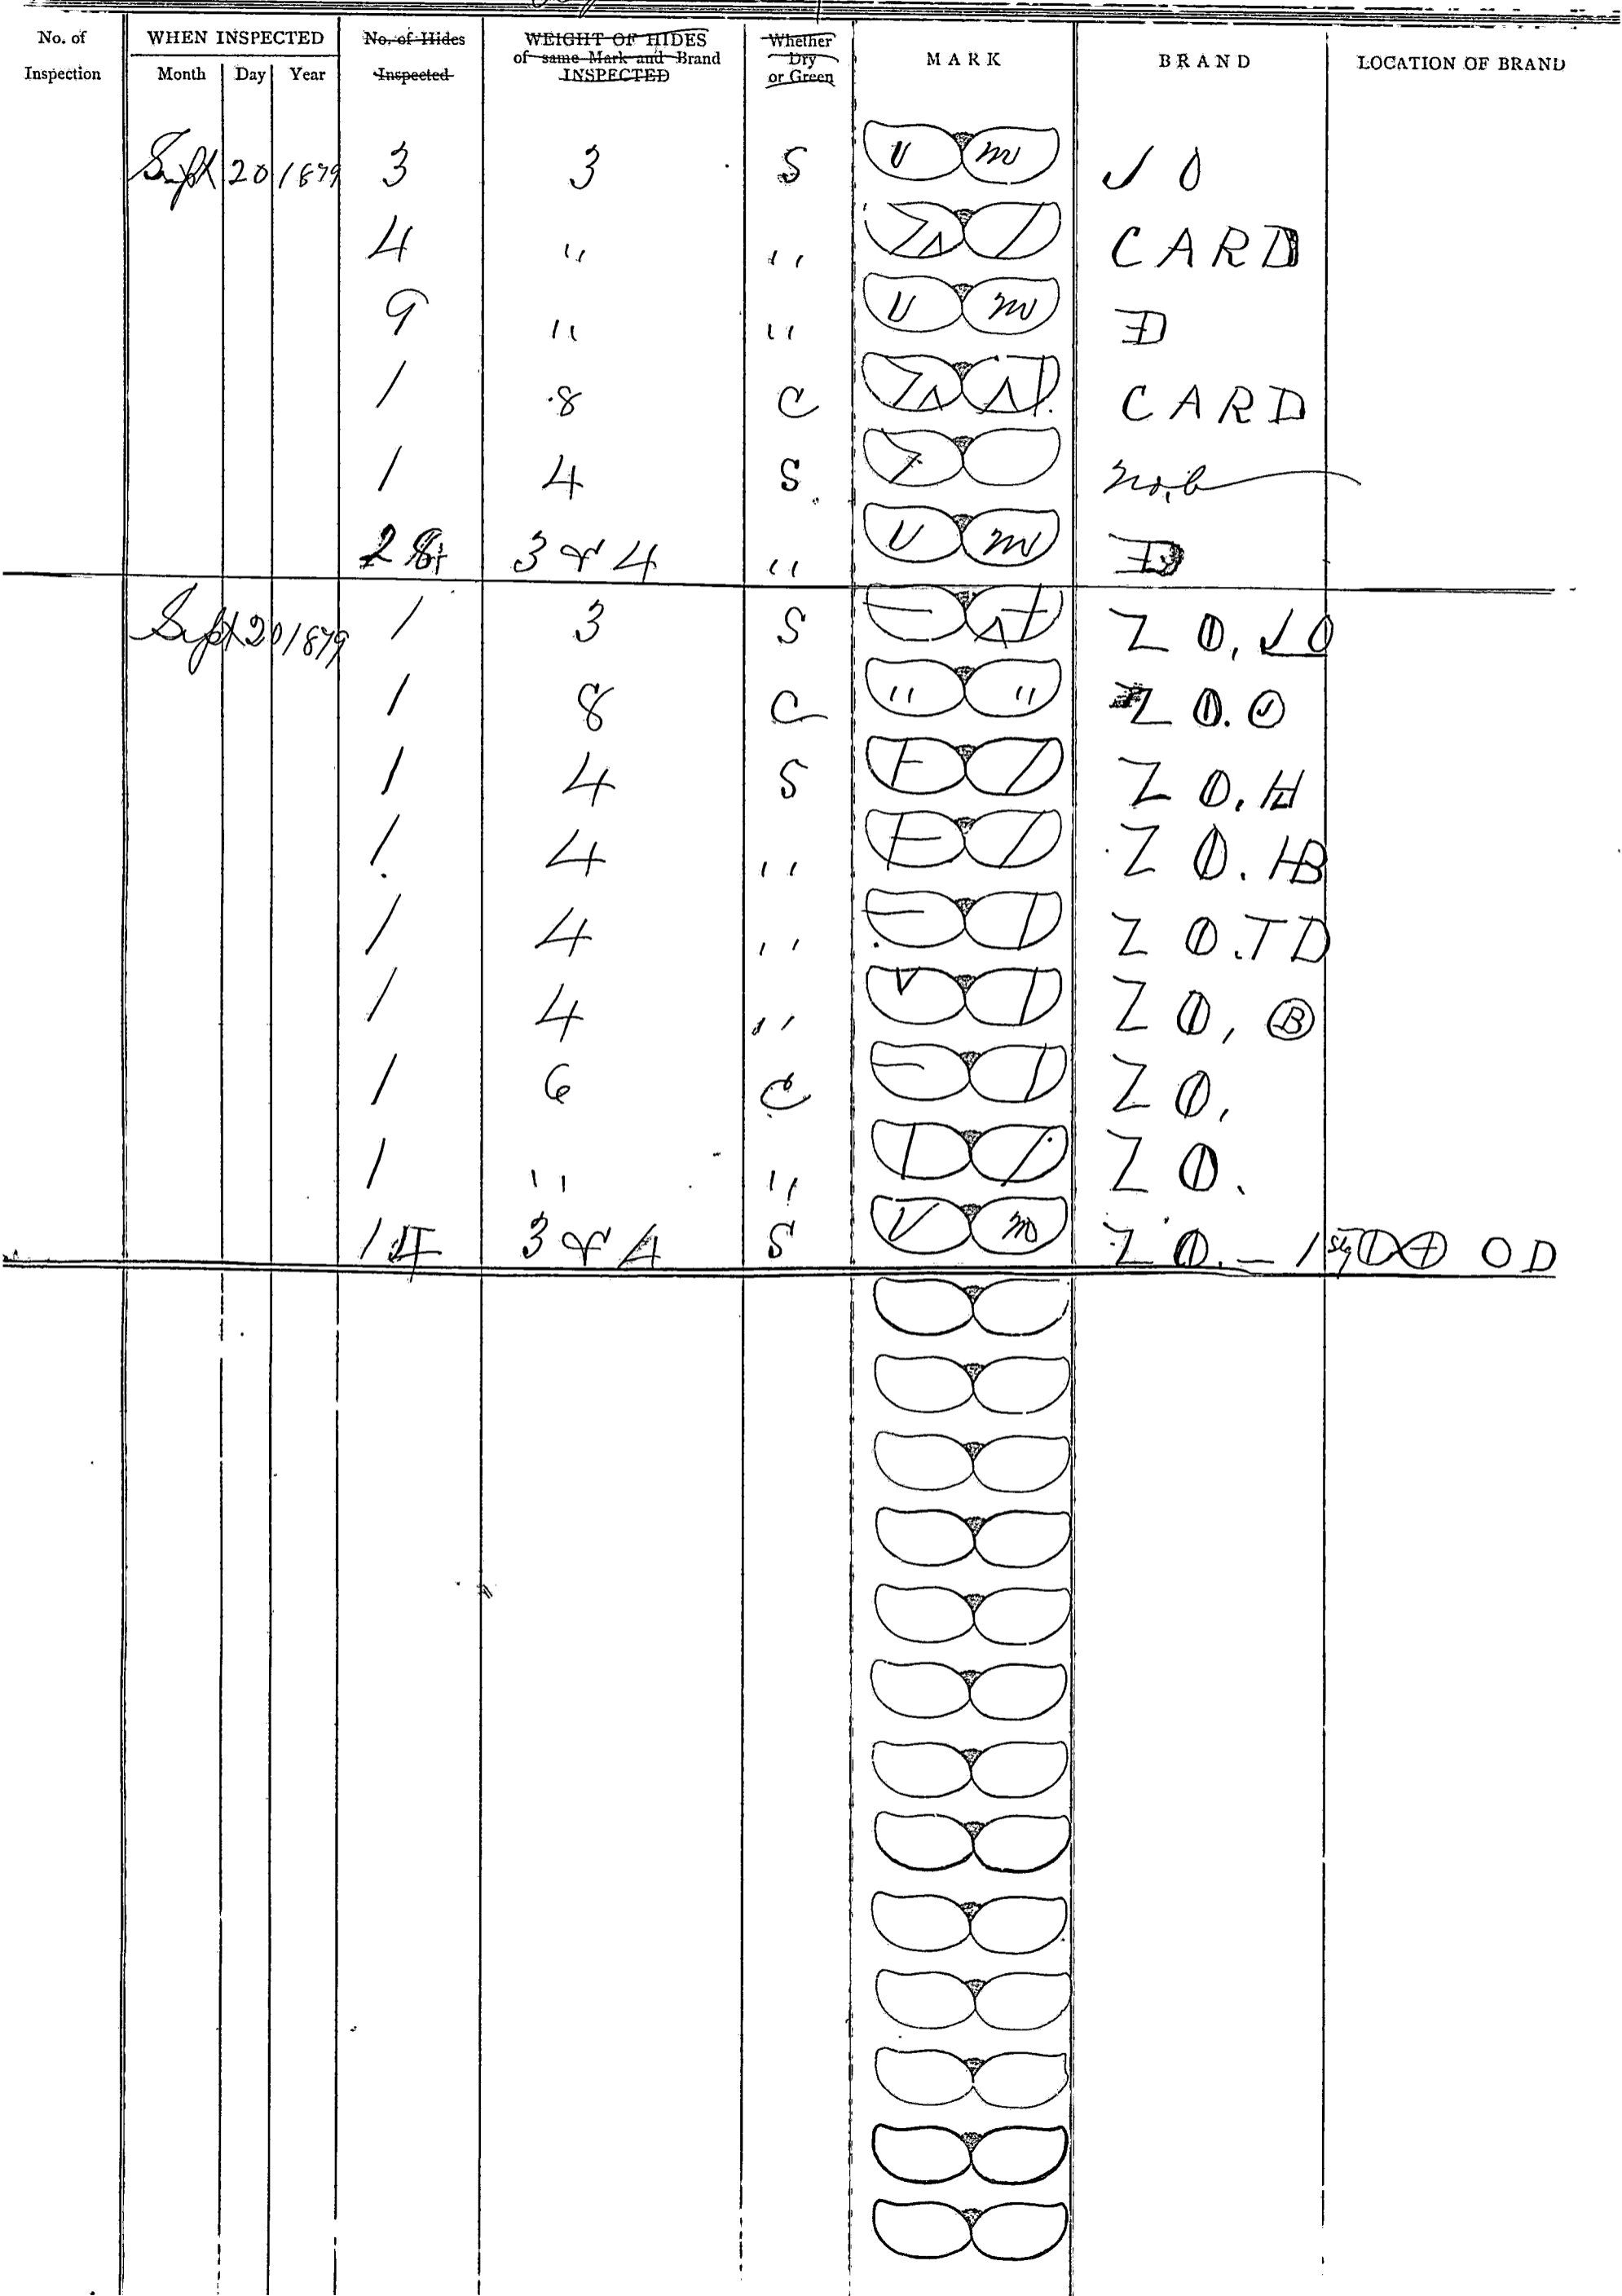 No. of Inspection WHEN INSPECTED Month Day Year No. of Hides Inspected WEIGHT OF HIDES of same Mark and Brand INSPECTED Whether Dry or Green MARK BRAND LOCATION OF BRAND
Sept 20 1879 3 3 S V M J O
4 " " CARD
9 " " V M D
1 8 C CARD
1 4 S no. b
28 3 & 4 " V M D
Sept 20 1879 1 3 S Z O, J O
1 8 C " " Z O. O
1 4 S Z O. H
1 4 " Z O. HB
1 4 " Z O. TD
1 4 " V Z O, B
1 6 C Z O,
1 " " Z O.
14 3 & 4 S V M Z O. — 1 O D